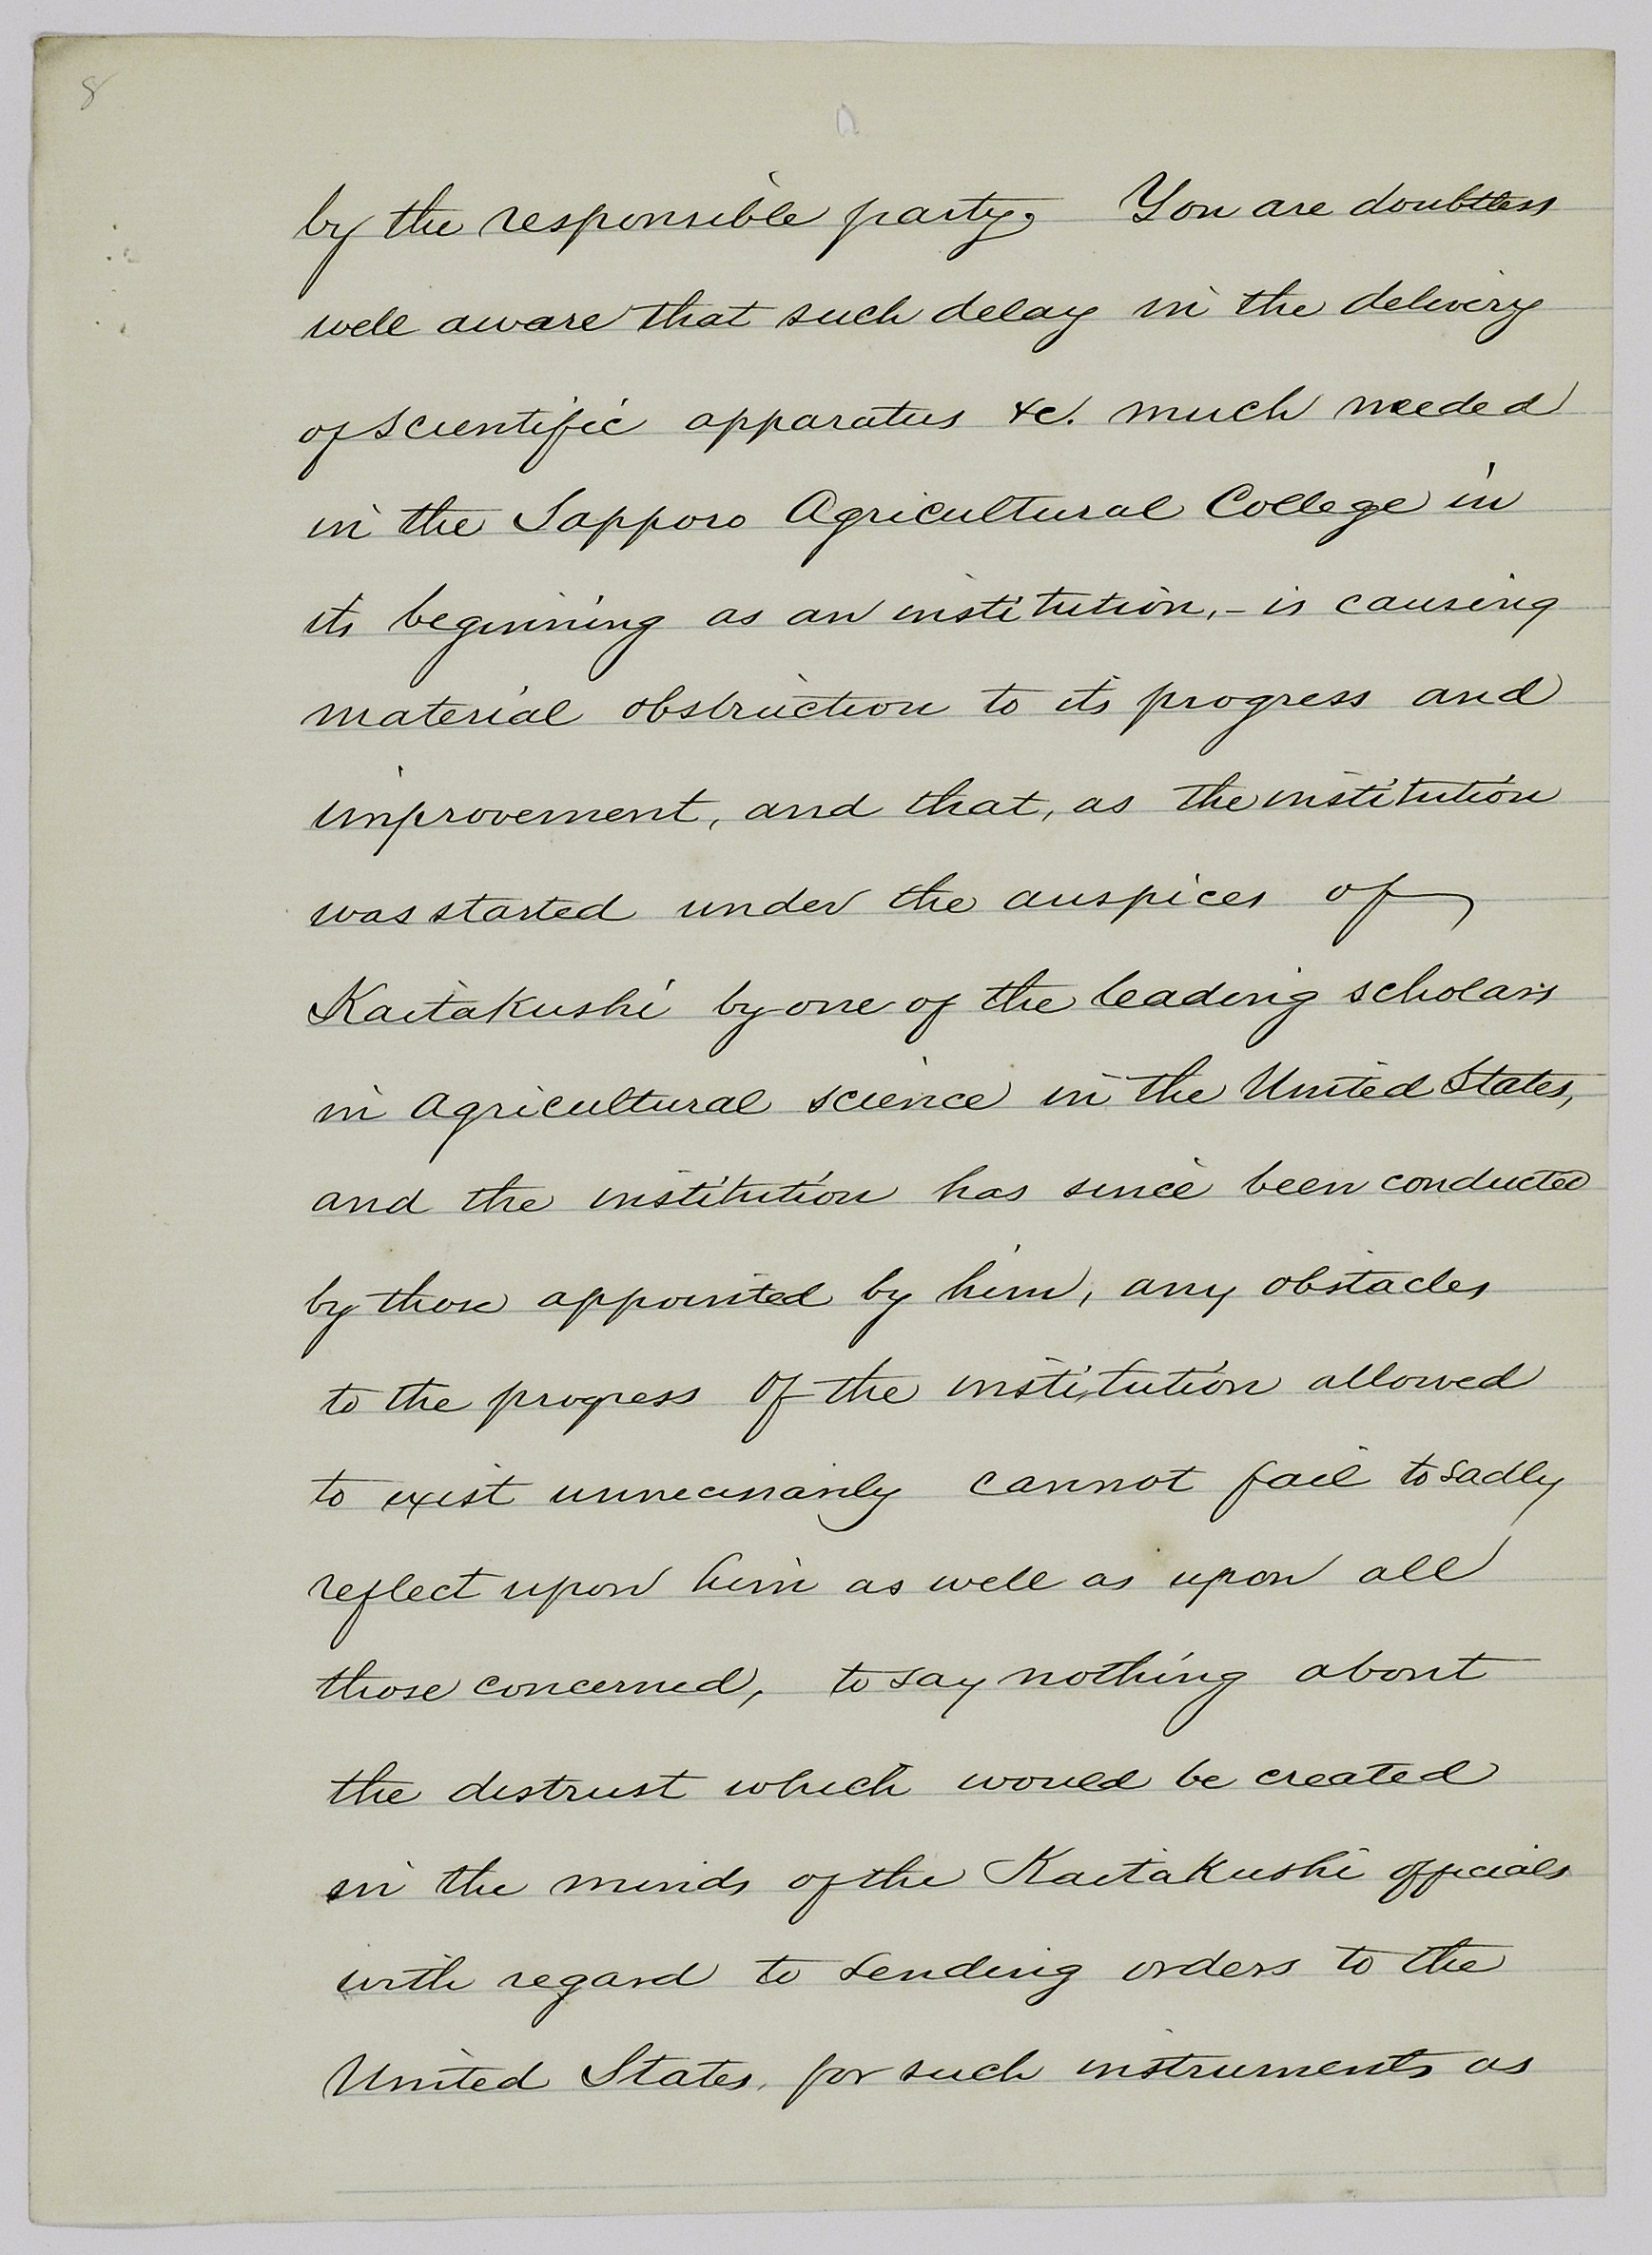 8
by the responsible party. You are doubtless
well aware that such delay in the delivery
of scientific apparatus &c. much needed
in the Sapporo Agricultural College in
its beginning as an institution, - is causing
material obstruction to its progress and
improvement, and that, as the institution
was started under the auspices of
Kaitakushi by one of the leading scholars
in agricultural science in the United States,
and the institution has since been conducted
by those appointed by him, any obstacles
to the progress of the institution allowed
to exist unnecessarily cannot fail to sadly
reflect upon him as well as upon all
those concerned, to say nothing about
the distrust which would be created
in the minds of the Kaitakushi officials
with regard to sending orders to the
United States, for such instruments as